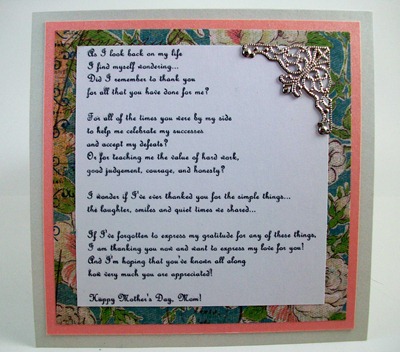 As I look back on my life
I find myself wondering...
Did I remember to thank you
for all that you have done for me?
For all of the times you were by my side
to help me celebrate my successes
and accept my defeats?
Or for teaching me the value of hard work,
good judgement, courage, and honesty?
I wonder if I've ever thanked you for the simple things...
the laughter, smiles and quiet times we shared...
If I've forgotten to express my gratitude for any of these things,
I am thanking you now and want to express my love for you!
And I'm hoping that you've known all along
how very much you are appreciated!
Happy Mother's Day, Mom!